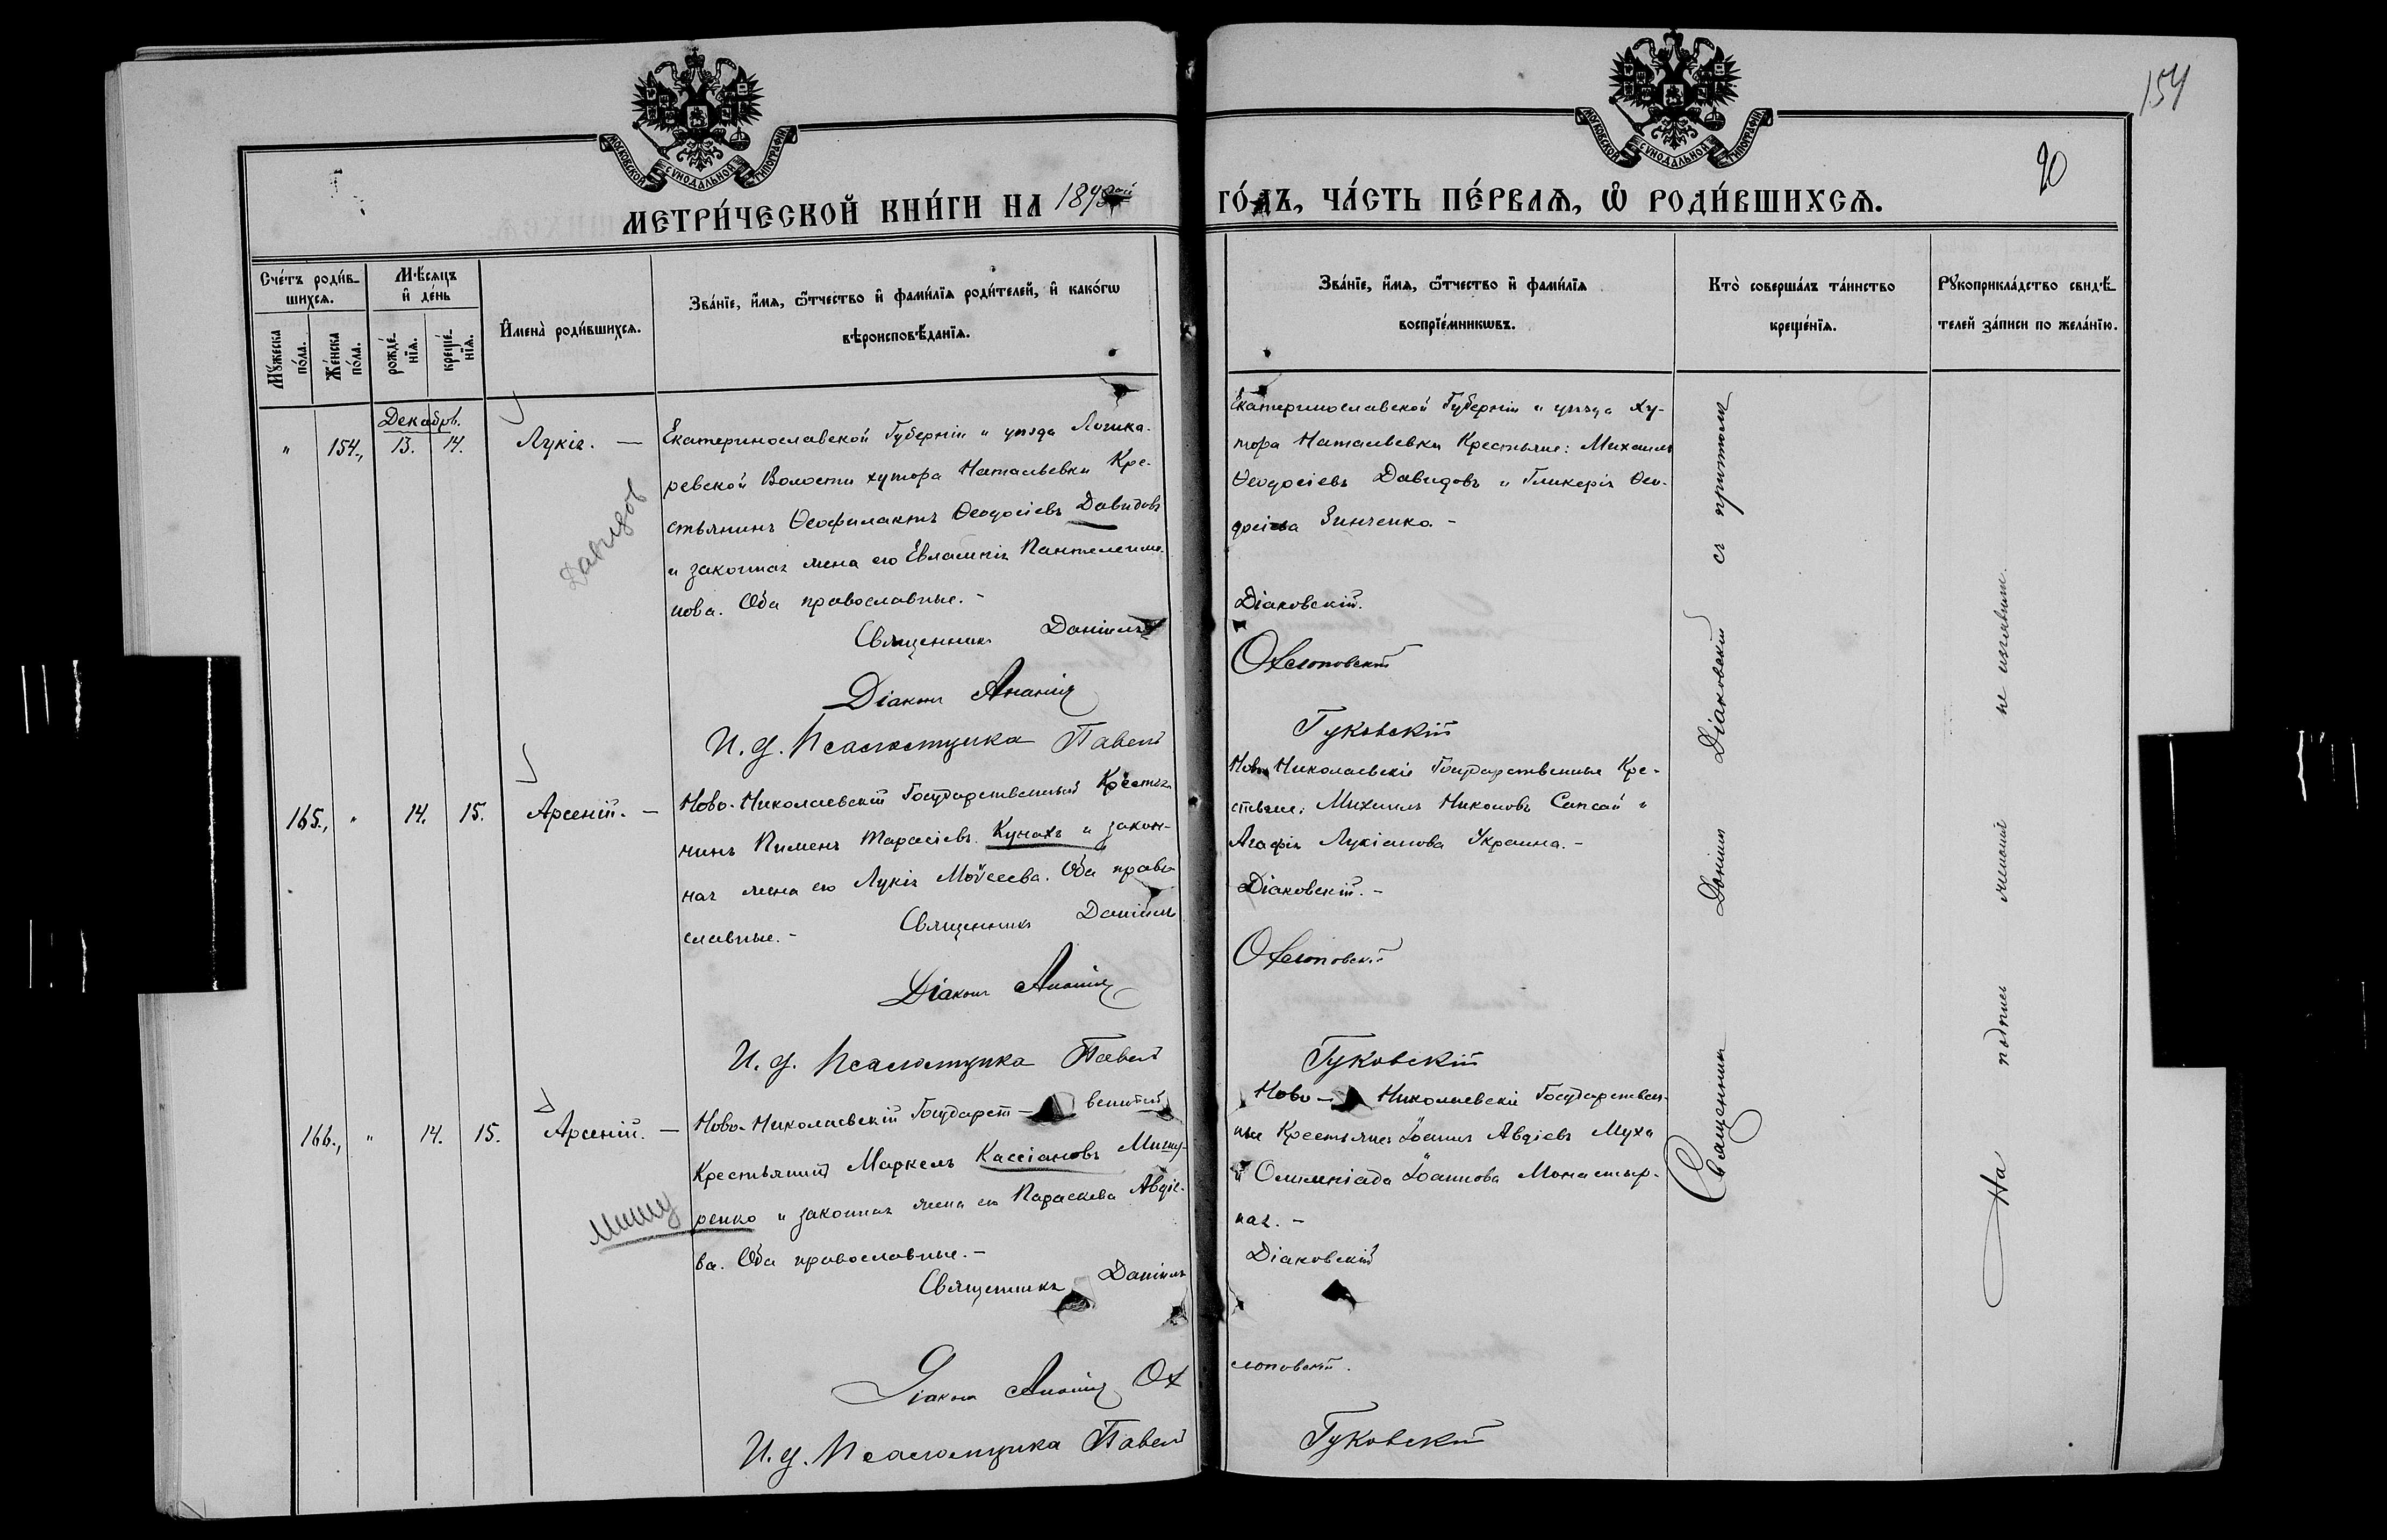 154
20
МОСКОВСКОЙ СѴНОДАЛЬНОЙ ТИПОГРАФІИ
МОСКОВСКОЙ СѴНОДАЛЬНОЙ ТИПОГРАФІИ
МЕТРИ́ЧЕСКОЙ КНИ́ГИ НА 189
ГО́ДЪ, ЧА́СТЬ ПЕ́РВАѦ, Ѡ҆ РОДИ́ВШИХСѦ.
Сче́тъ роди́вшихсѧ.
Мꙋ́жеска по́ла.
Же́нска по́ла.
Мѣ́сѧцъ и҆ де́нь
рожде́нїѧ.
креще́нїѧ.
И҆мена̀ роди́вшихсѧ.
Зва́нїе, и҆́мѧ, ѻ҆́тчество и҆ фами́лїѧ роди́телей, и҆ како́гѡ
вѣроисповѣ́данїѧ.
Зва́нїе, и҆́мѧ, ѻ҆́тчество и҆ фами́лїѧ
воспрїе́мникѡвъ.
Кто̀ соверша́лъ та́инство
креще́нїѧ.
Рꙋкоприкла́дство свидѣ́телей за́писи по жела́нїю.
Декабрь.
" 154., 13. 14. Лукія. —
Екатеринославской Губерніи и уѣзда Логика-
ревской Волости хутора Натальевки Кре-
стьянинъ Ѳеофилактъ Ѳеодосіевъ Давидовъ
и законная жена его Евлампія Пантелеимо-
нова. Оба православные. -
Давыдов
Священникъ Даніилъ
Діаконъ Ананія
И. д. Псаломщика Павелъ
Екатеринославской Губерніи и уѣзда ху-
тора Натальевки Крестьяне: Михаилъ
Ѳеодосіевъ Давидовъ и Гликерія Ѳео-
досіева Зинченко. -
Діаковскій.
Охлоповскій
Гуковскій
165., " 14. 15. Арсеній. —
Ново-Николаевскій Государственный Крестья-
нинъ Пименъ Тарасіевъ Кунахъ и закон-
ная жена его Лукія Моѵсеева. Оба право-
славные. -
Священникъ Даніилъ
Діаконъ Ананія
И. д. Псаломщика Павелъ
Ново-Николаевскіе Государственные Кре-
стьяне: Михаилъ Никоновъ Сапсай и
Агафія Лукіанова Украина. -
Діаковскій. -
Охлоповскій
Гуковскій
166., " 14. 15. Арсеній. —
Ново-Николаевскій Государст - венный
Крестьянинъ Маркелъ Кассіановъ Мишу-
ренко и законная жена его Параскева Авдіе-
ва. Оба православные. -
Мишу
Священникъ Даніилъ
Діаконъ Ананія Ох
И. д. Псаломщика Павелъ
Ново - Николаевскіе Государствен-
ные Крестьяне Іоаннъ Авдіевъ Муха
и Олимпіада Іоаннова Монастыр-
ная. -
Діаковскій
лоповскій.
Гуковскій
Священникъ Даніилъ Діаковскій съ причтомъ
На подпись желанія не изъявили.